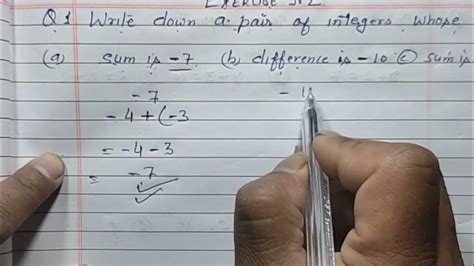 EXERCISE
Q1 Write down a pair of integers whose
(a) sum is -7 (b) difference is -10 (c) sum is
-7 -
-4 + (-3
= -4 - 3
= -7